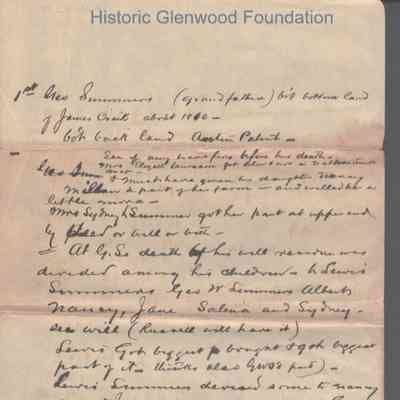 Historic Glenwood Foundation
1st Geo Summers (grandfather) bo't bottom land
of James Craik about 18 0 —
bo't back land Austin Patent —
See if any transfers before his death —
Mrs Lawson for about a
Geo
I must have given his daughter Nancy
a part of her farm — and willed her a
little more —
Mrs Sydney Summer got her part at upper end
by deed or will or both —
At G. S. death by his will residue was
devided among his children — to Lewis
Summers Geo W Summers Albert
Nancy, Jane Salina and Sydney —
see will (Russell will have it)
Lewis Got biggest p bought & got biggest
part of it — thinks also GWS's part) —
Lewis Summers devised some to nancy